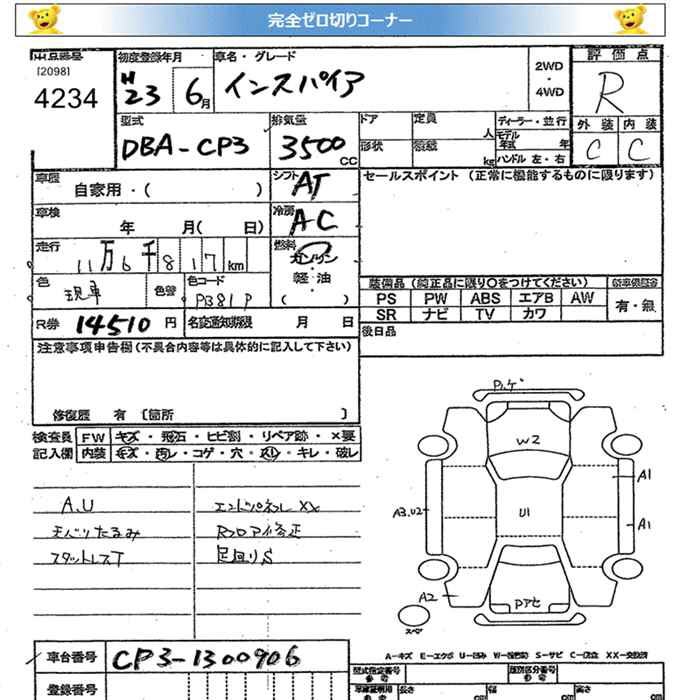 完全ゼロ切りコーナー
出品番号 初度登録年月 車名・グレード 2WD・4WD 評価点
[2098]
4234 H23 6月 インスパイア R
型式 排気量 ドア 定員 ディーラー・並行 外装 内装
DBA-CP3 3500CC 形状 人 モデル年式 年 C C
kg ハンドル 左・右
車歴 自家用・( ) シフト AT セールスポイント (正常に機能するものに限ります)
車検 年 月( 日) 冷房 AC
走行 11万6千817km 燃料 ガソリン・軽油( )
色 色替 色コード P381P 装備品 (純正品に限り○をつけてください)
PS PW ABS エアB AW 有・無
SR ナビ TV カワ
R券 14510円 名変通知期限 月 日 後日品
注意事項申告欄(不具合内容等は具体的に記入して下さい)
修復歴 有 [箇所 ]
検査員記入欄 FW キズ・飛石・ヒビ割・リペア跡・×要
内装 キズ・汚レ・コゲ・穴・スレ・キレ・破レ
A.U エンドパネルXX
天ベリたるみ Rフロア修正
スタットレスT 足回りS
W2
A1
A3.U2 U1
A1
A2 Pアセ
スペア
車台番号 CP3-1300906
A-キズ E-エクボ U-凹み S-サビ C-腐食 XX-交換済
登録番号 型式指定番号 類別区分番号
長さ cm 幅 cm 高さ cm